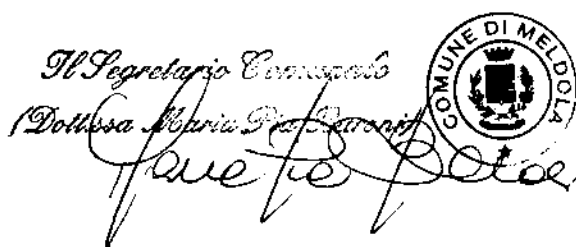 Il Segretario Comunale
(Dott.ssa Maria Pia Baroni)
COMUNE DI MELDOLA